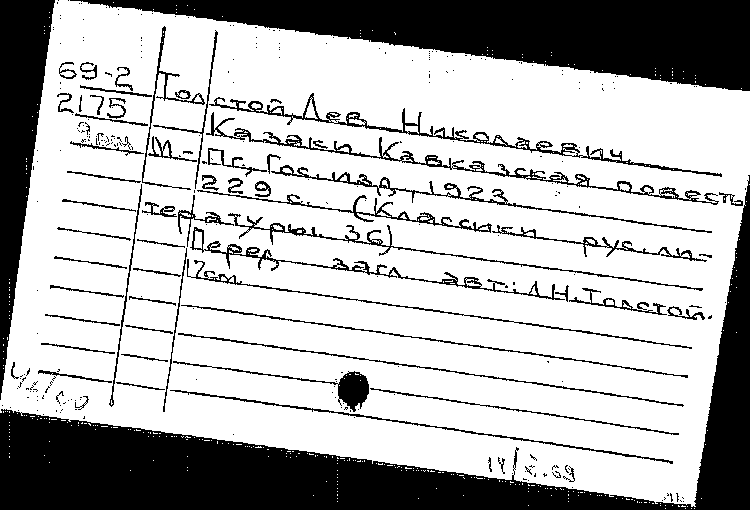 69-2
2175
Толстой, Лев Николаевич.
Казаки Кавказская повесть
М.- Пг., Гос. изд., 1923
229 с. (Классики рус. ли-
тературы. 36)
Перед загл. авт.: Л.Н. Толстой.
17см.
14/X-69